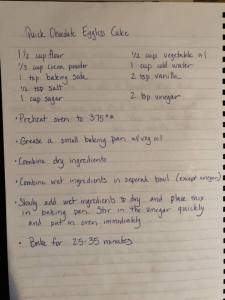 Quick Chocolate Eggless Cake
1 1/2 cup flour
1/3 cup cocoa powder
1 tsp baking soda
1/2 tsp salt
1 cup sugar
1/2 cup vegetable oil
1 cup cold water
2 tsp vanilla
2 tsp vinegar
• Preheat oven to 375°
• Grease a small baking pan w/ veg oil
• Combine dry ingredients
• Combine wet ingredients in separate bowl (except vinegar)
• Slowly add wet ingredients to dry and place mix
in baking pan. Stir in the vinegar quickly
and put in oven immediately
• Bake for 25-35 minutes